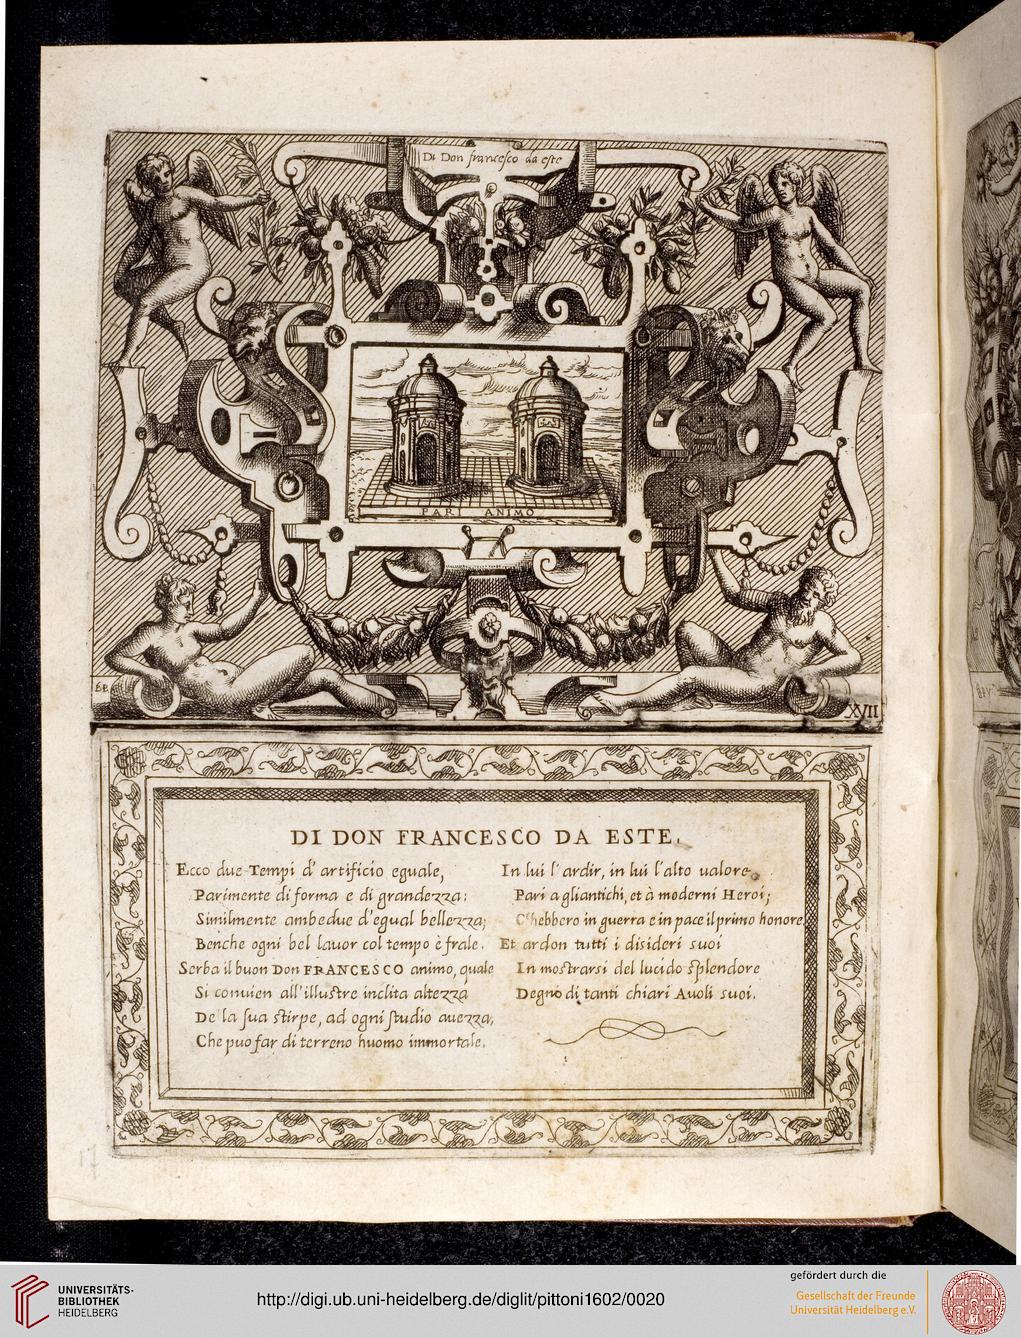 Di Don francesco da este
PARI ANIMO
B.P.
XVII
DI DON FRANCESCO DA ESTE.
Ecco due Tempi d'artificio eguale,
Parimente di forma e di grandezza;
Similmente ambedue d'egual bellezza;
Benche ogni bel lauor col tempo è frale.
Serba il buon DON FRANCESCO animo, quale
Si conuien all'illustre inclita altezza
De la sua stirpe, ad ogni studio auezza,
Che puo far di terreno huomo immortale.
In lui l'ardir, in lui l'alto ualore
Pari a gli antichi, et à moderni Heroi;
C'hebbero in guerra e in pace il primo honore
Et ardon tutti i disideri suoi
In mostrarsi del lucido splendore
Degno di tanti chiari Auoli suoi.
17
UNIVERSITÄTS-
BIBLIOTHEK
HEIDELBERG
http://digi.ub.uni-heidelberg.de/diglit/pittoni1602/0020
gefördert durch die
Gesellschaft der Freunde
Universität Heidelberg e.V.